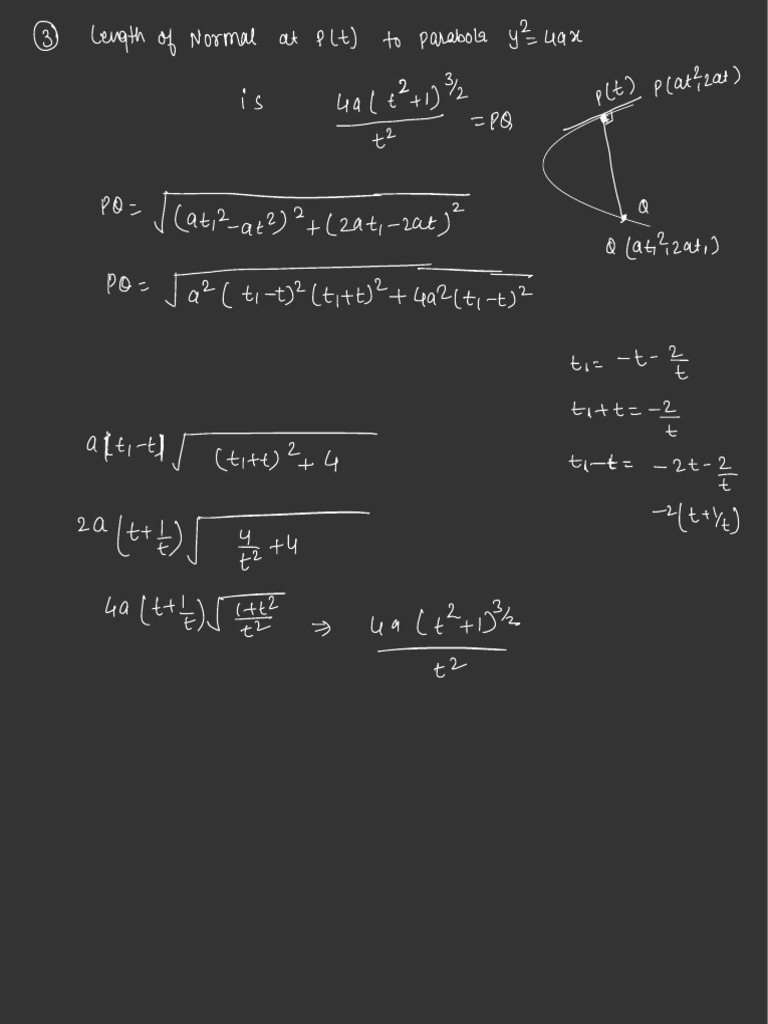 ③ Length of Normal at P(t) to parabola y²=4ax
is 4a(t²+1)^3/2 / t² = PQ
P(t) P(at²,2at)
Q
Q(at₁²,2at₁)
PQ = √((at₁²-at²)²+(2at₁-2at)²)
PQ = √(a²(t₁-t)²(t₁+t)²+4a²(t₁-t)²)
t₁= -t-2/t
t₁+t=-2/t
t₁-t= -2t-2/t
-2(t+1/t)
a|t₁-t|√((t₁+t)²+4)
2a(t+1/t)√(4/t²+4)
4a(t+1/t)√((1+t²)/t²) ⇒ 4a(t²+1)^3/2 / t²